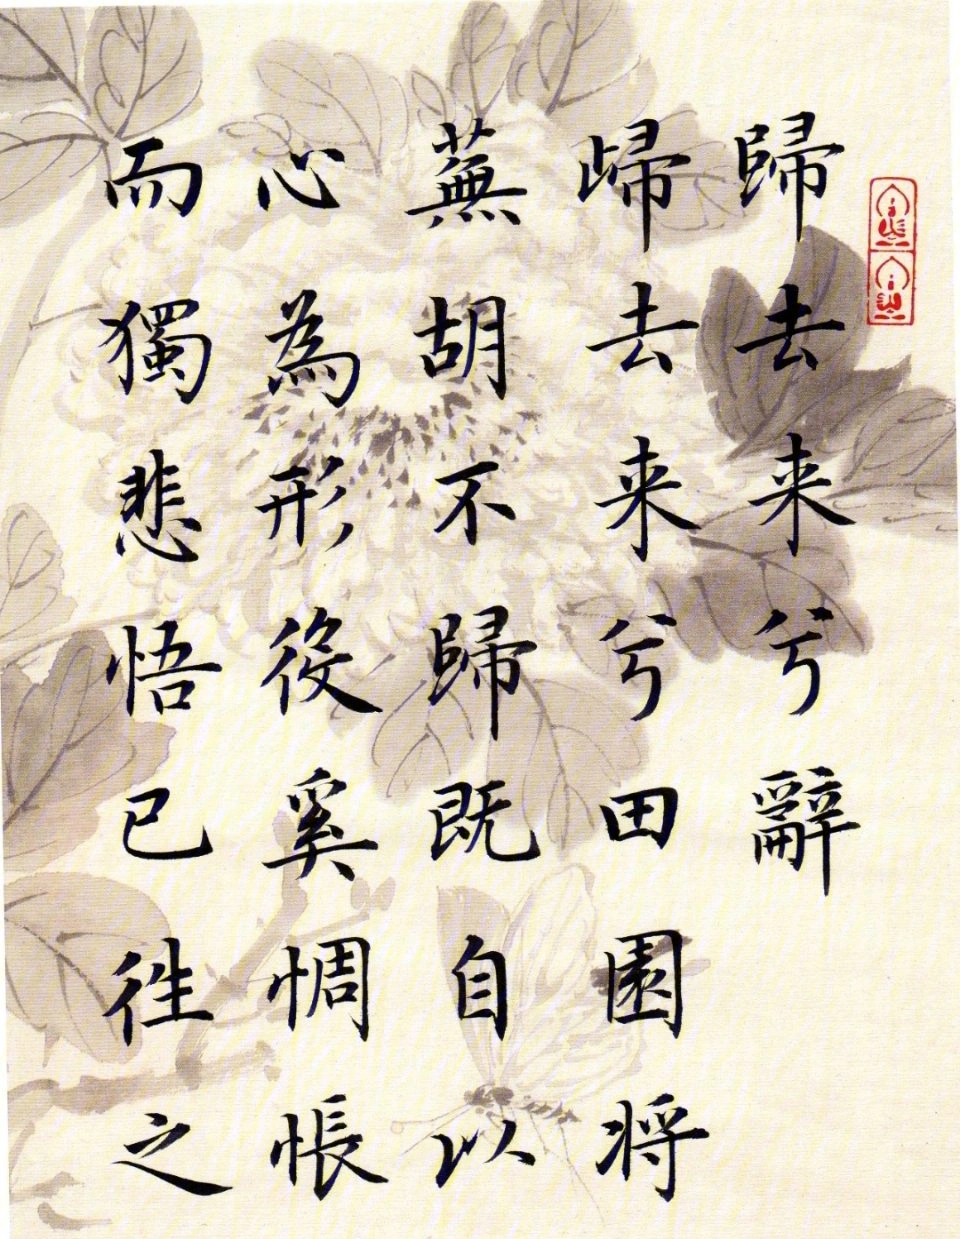 歸去来兮辭
歸去来兮田園将
蕪胡不歸既自以
心為形役奚惆悵
而獨悲悟已往之